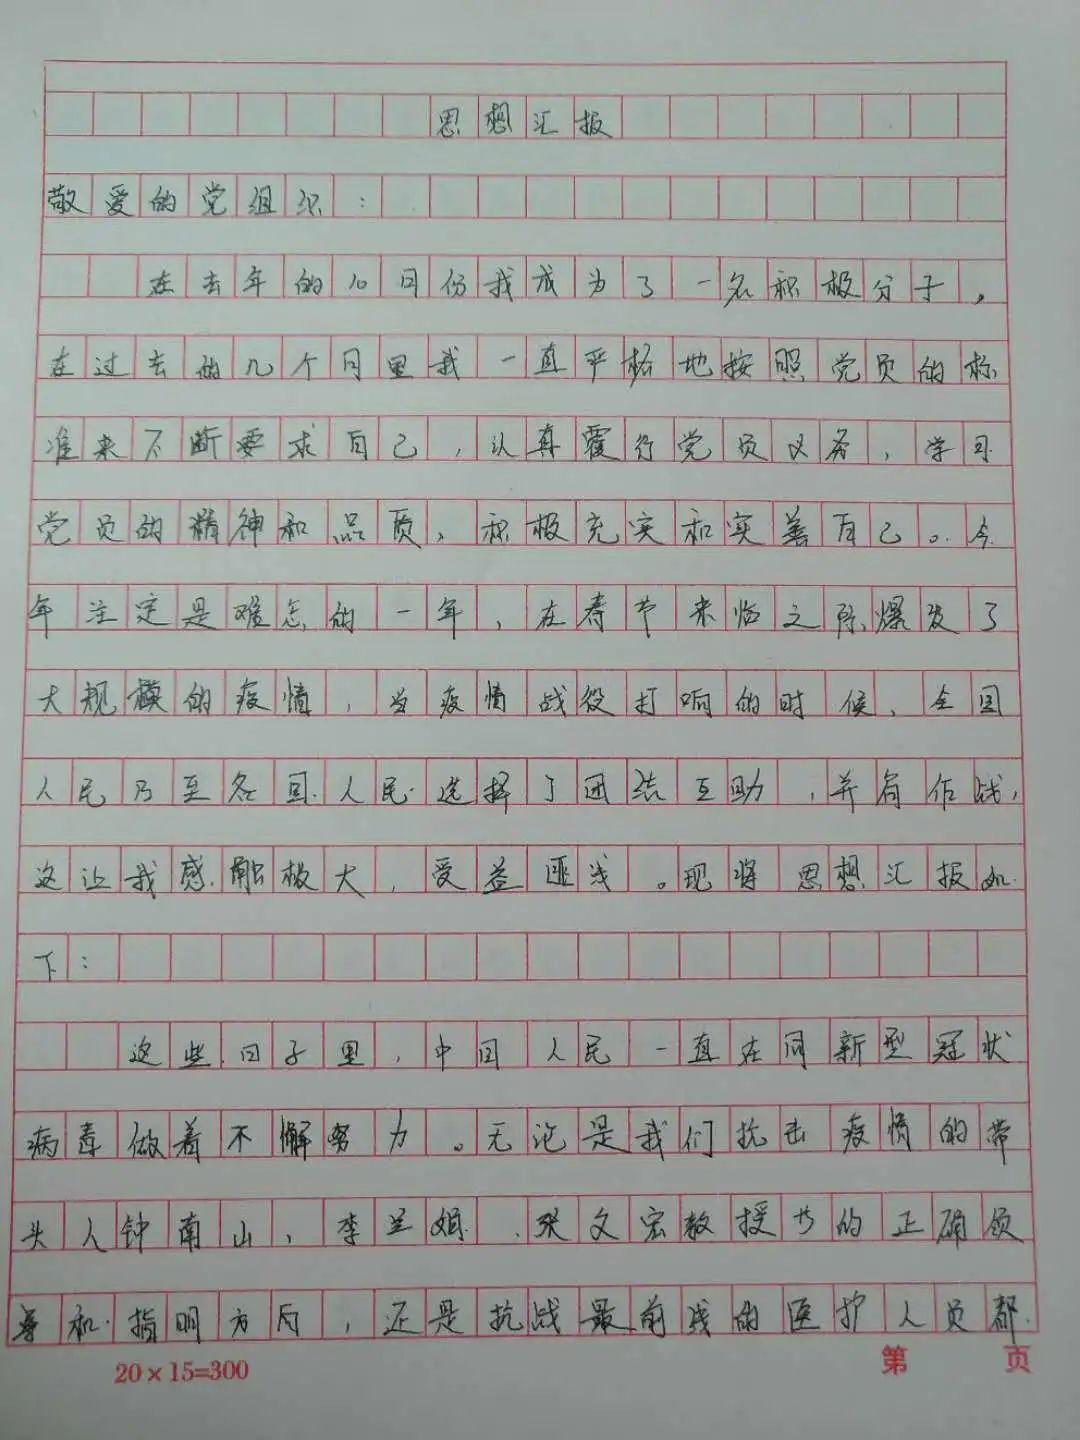 思想汇报
敬爱的党组织：
在去年的10月份我成为了一名积极分子，
在过去的几个月里我一直严格地按照党员的标
准来不断要求自己，认真履行党员义务，学习
党员的精神和品质，积极充实和实善自己。今
年注定是难忘的一年，在春节来临之际爆发了
大规模的疫情，当疫情战役打响的时候，全国
人民乃至各国人民选择了团结互助，并肩作战，
这让我感触极大，受益匪浅。现将思想汇报如
下：
这些日子里，中国人民一直在同新型冠状
病毒做着不懈努力。无论是我们抗击疫情的带
头人钟南山，李兰娟、张文宏教授等的正确领
导和指明方向，还是抗战最前线的医护人员都
20×15=300
第 页